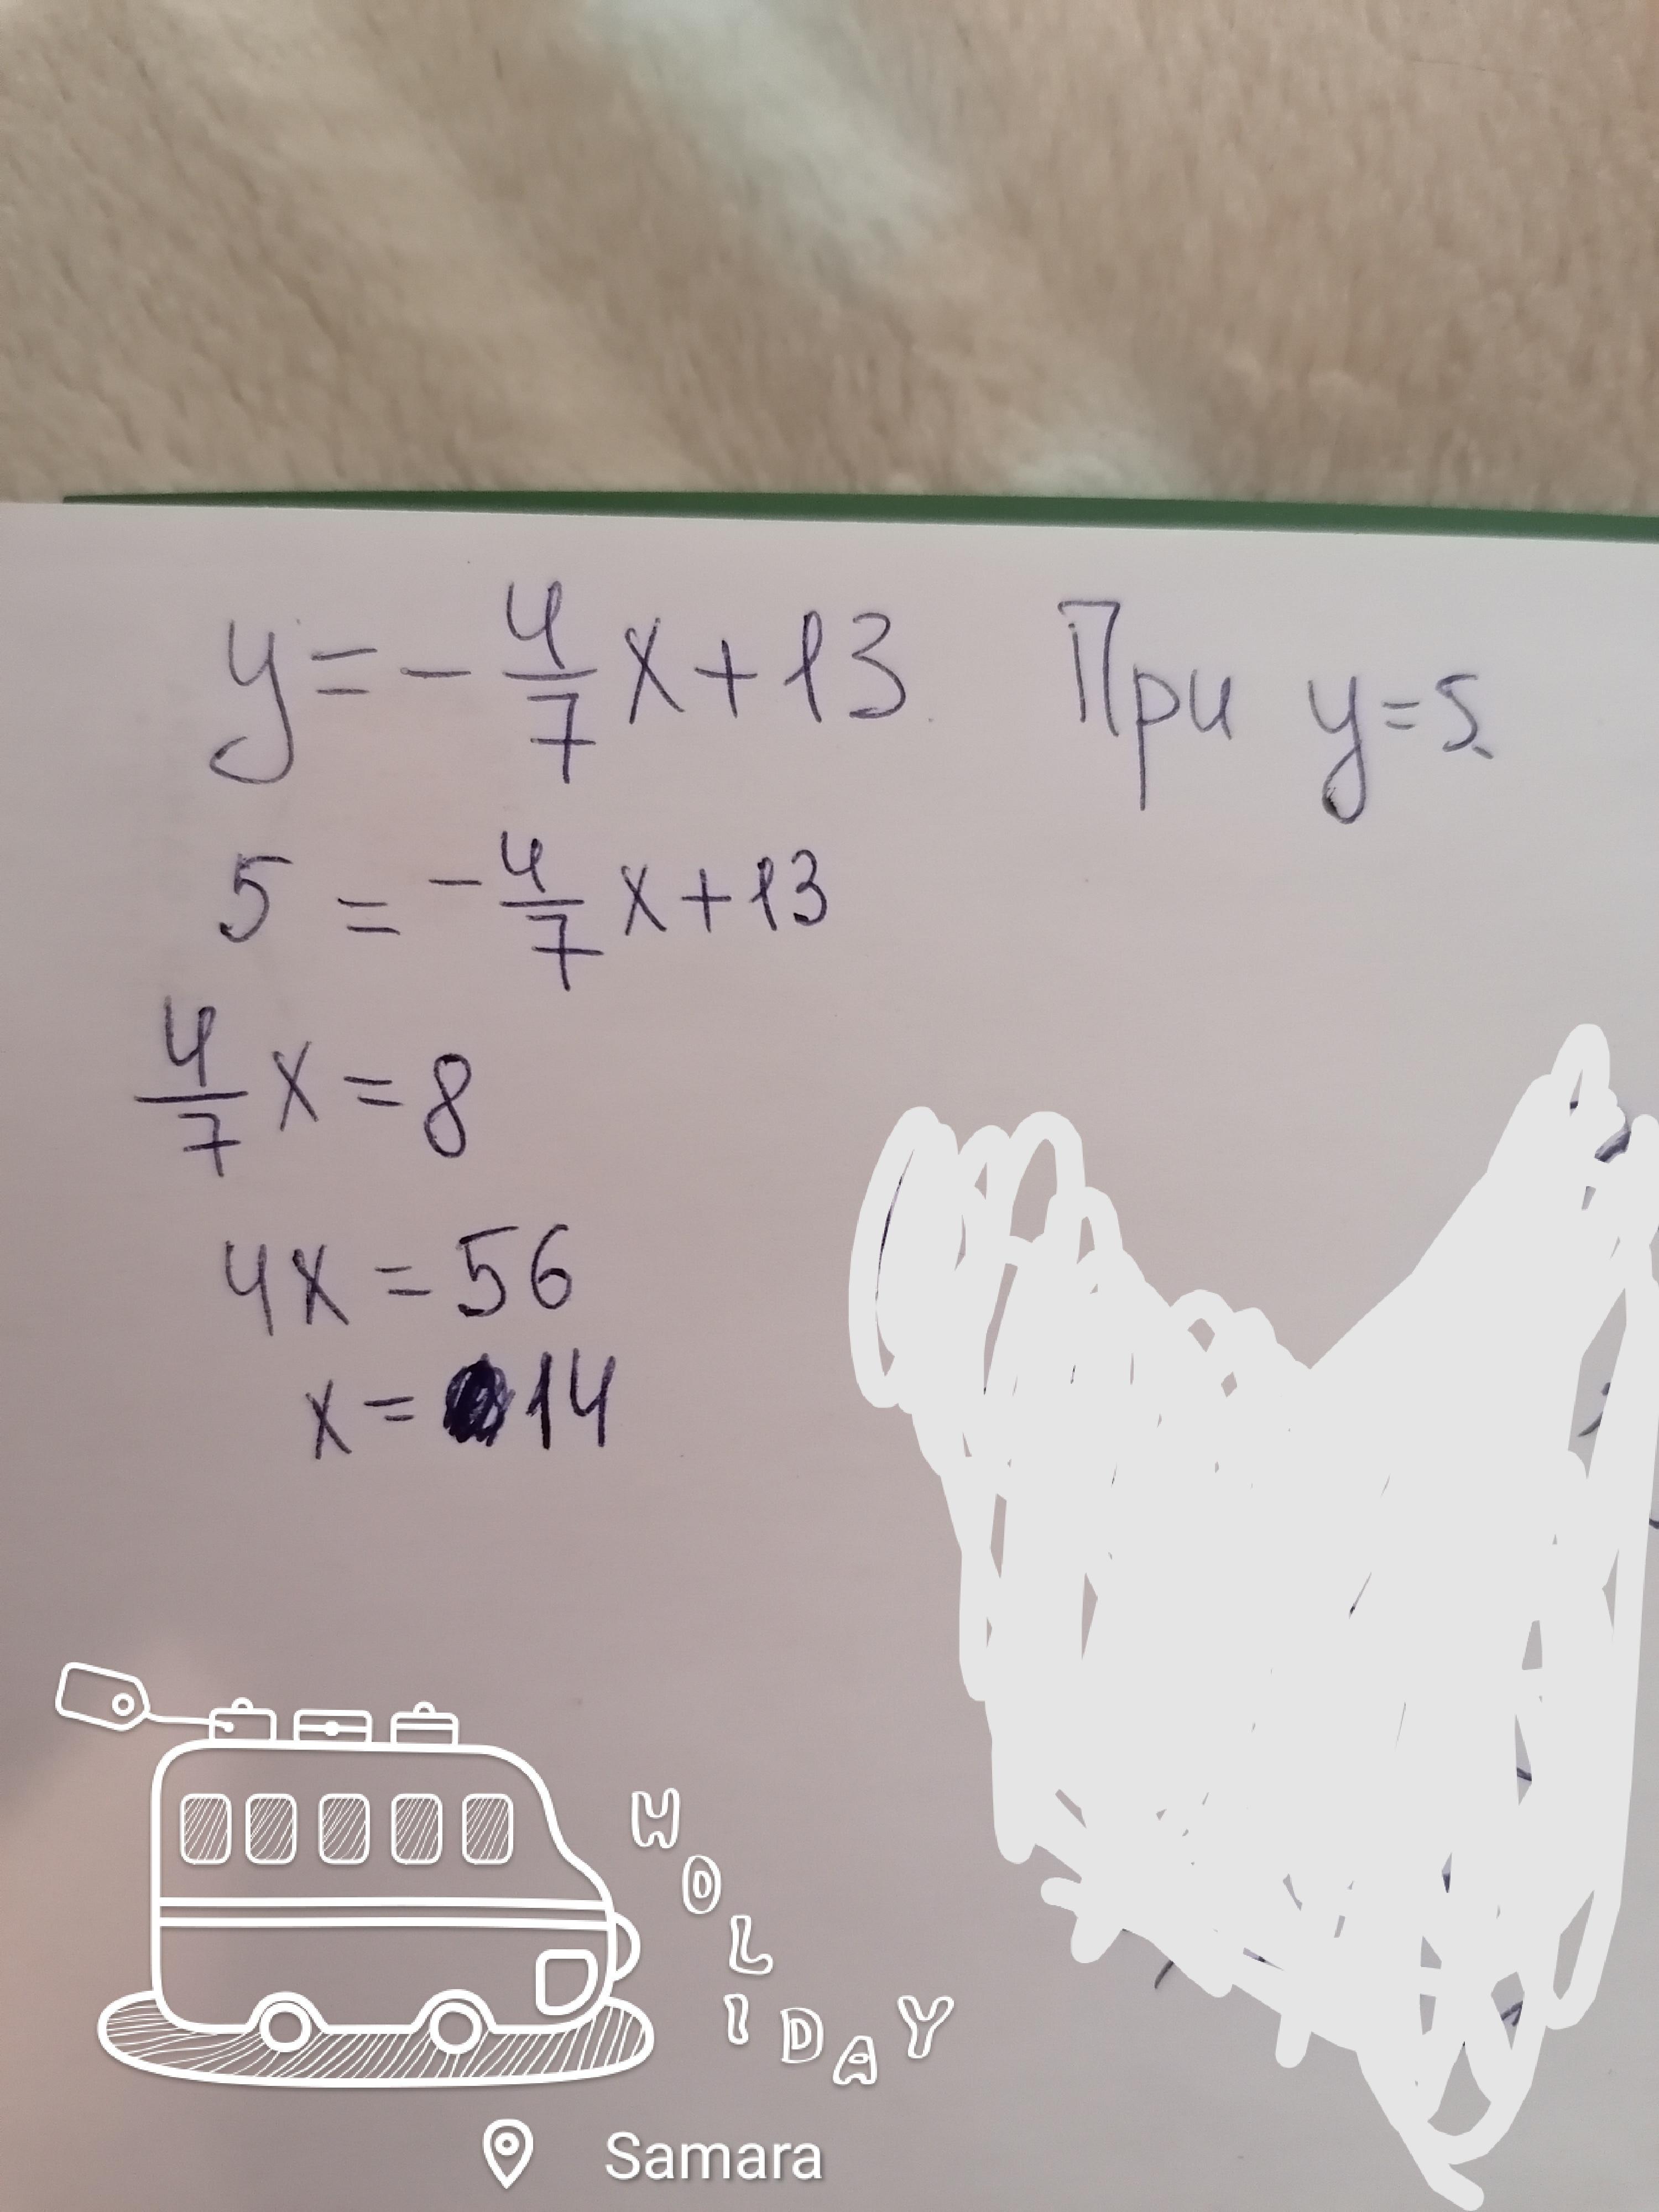 y = -4/7 x + 13 При y=5.
5 = -4/7 x + 13
4/7 x = 8
4x = 56
x = 14
HOLIDAY
Samara